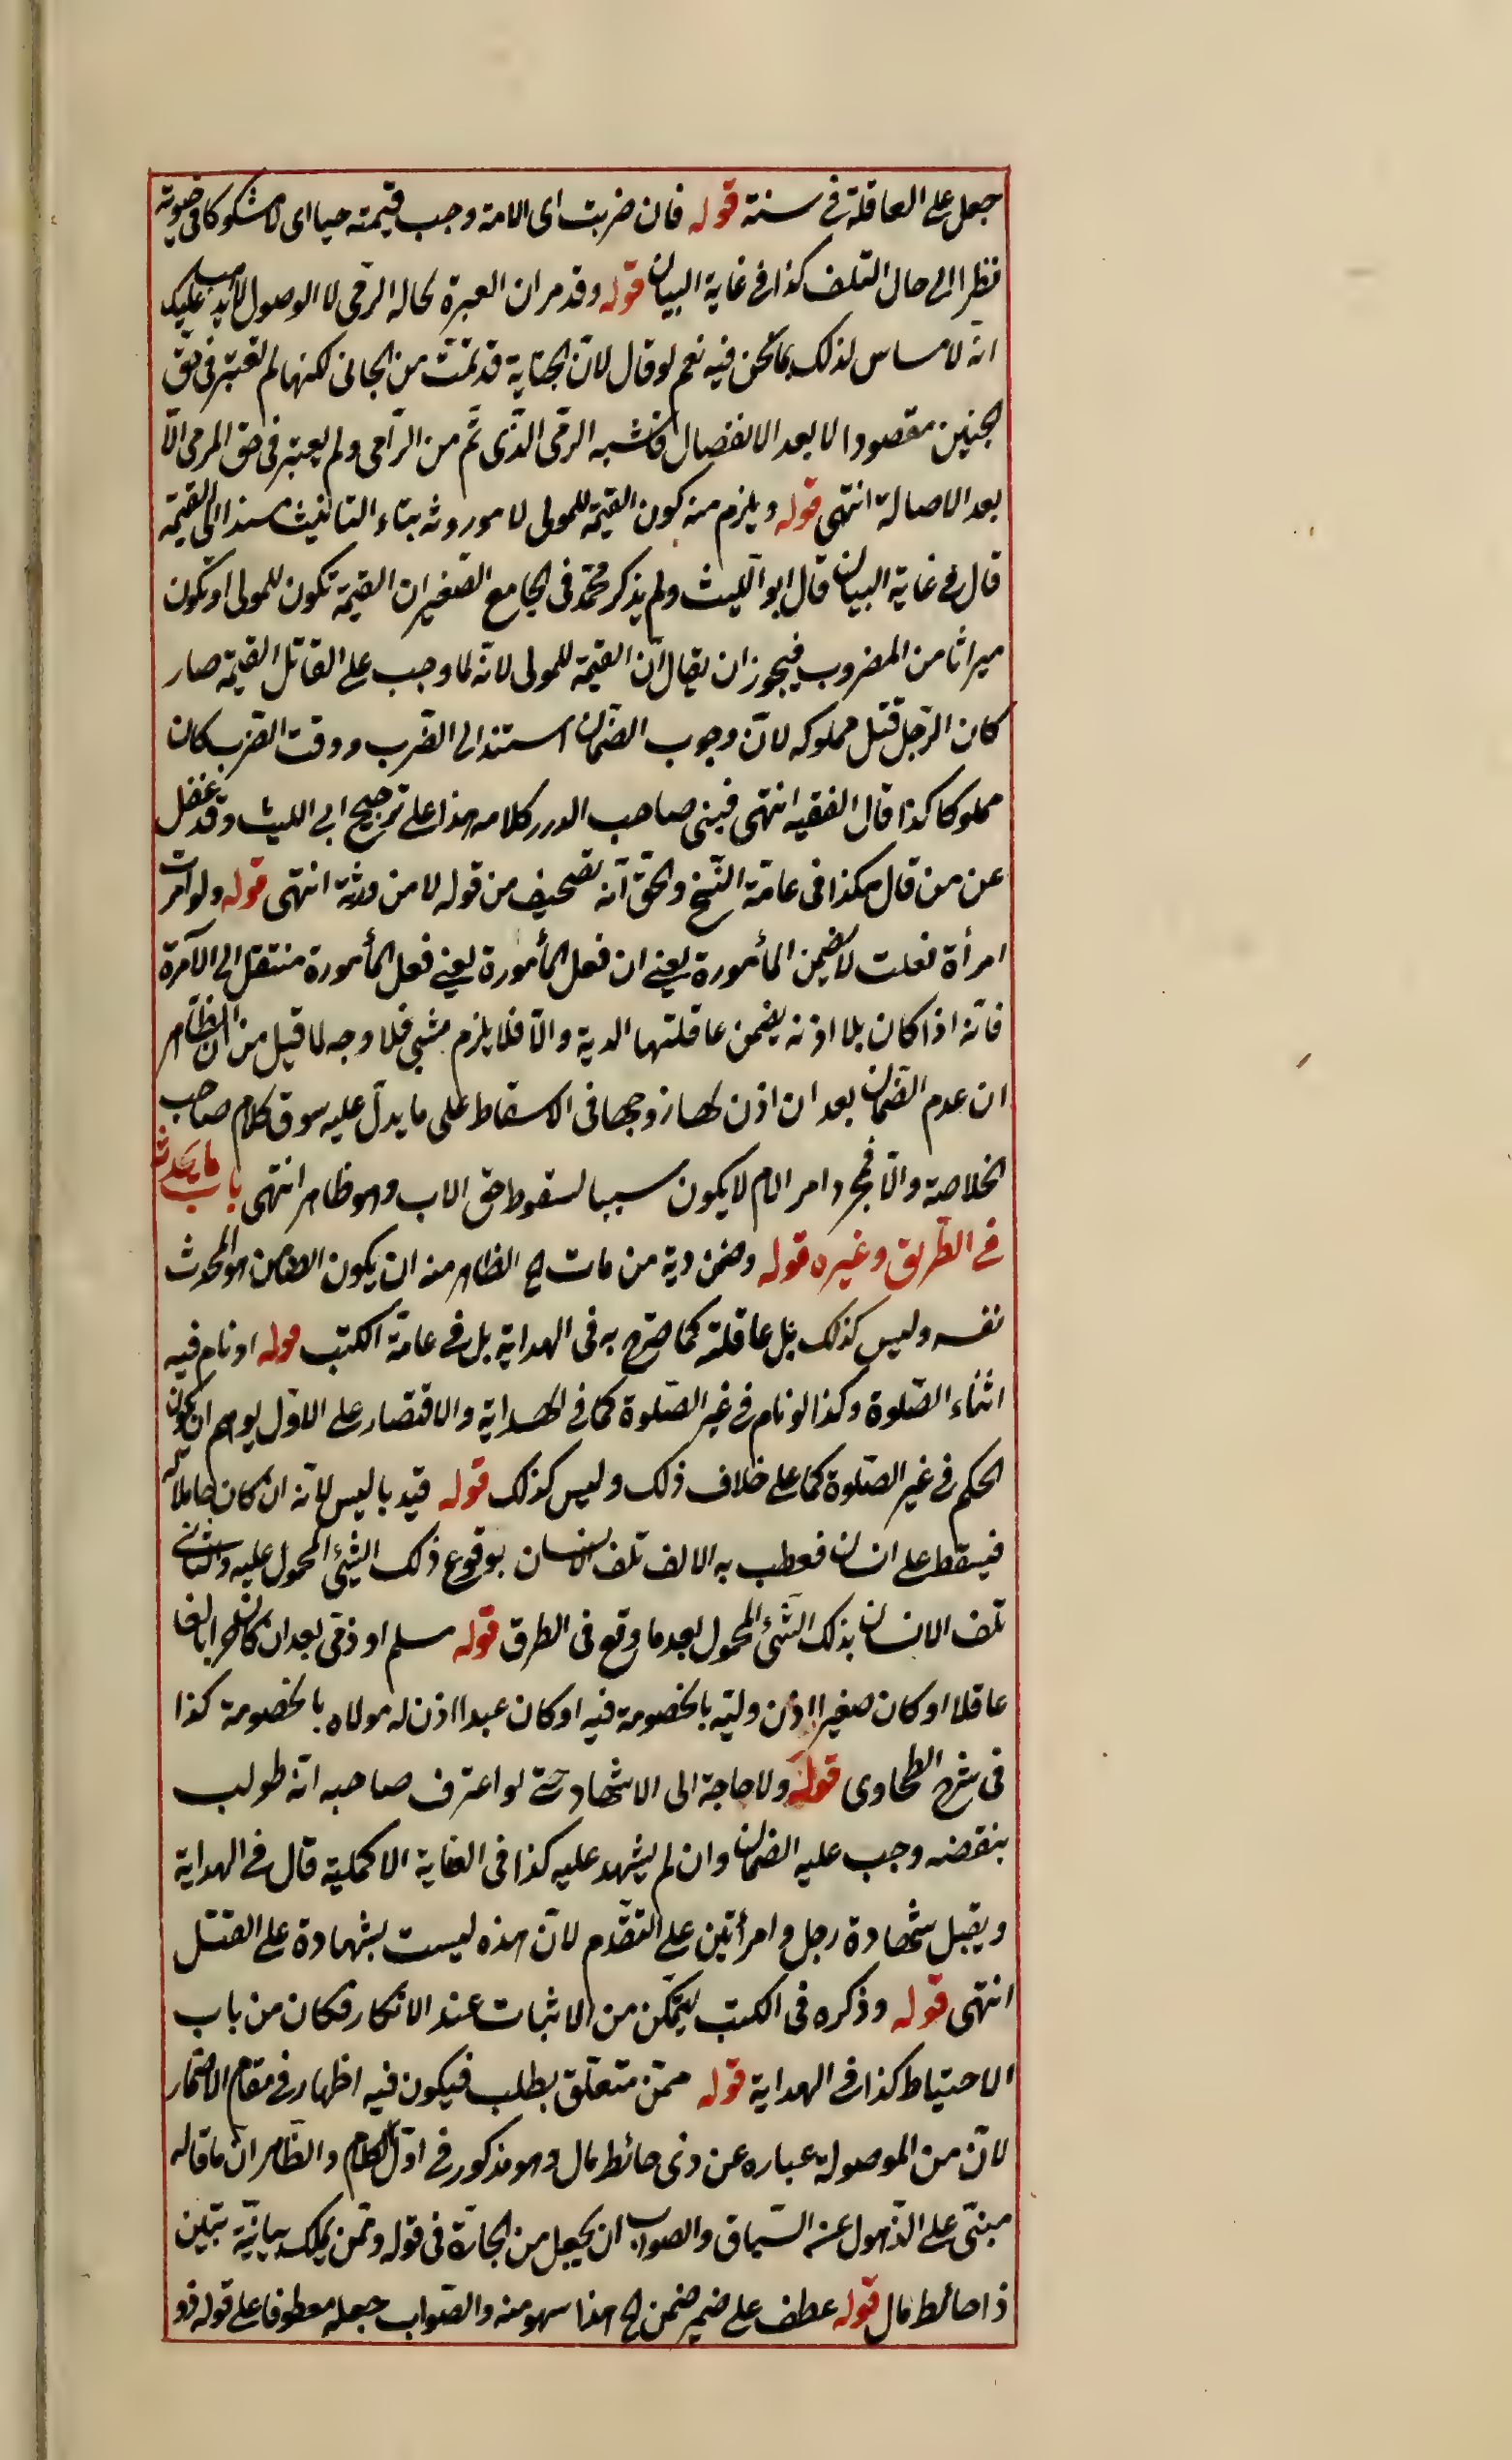 جعل على العاقلة في سنة قوله فان ضربت اى الامة وجب قيمته حيا اى لا مشكوكا في حيوته
نظرا الى حال التلف كذا في غاية البيان قوله وقد مر ان العبرة لحالة الرمى لا الوصول لا يذهب عليك
انه لا مساس لذلك بما نحن فيه نعم لو قال لانّ الجناية قد تمّت من الجانى لكنها لم تعتبر في حق
الجنين مقصودا الا بعد الانفصال فاشبه الرمى الّذى تمّ من الرّامى ولم يعتبر في حق المرمى الّا
بعد الاصالة انتهى قوله ويلزم منه كون القيمة للمولى لا موروثه بتاء التانيث مسندا الى القيمة
قال في غاية البيان قال ابو الليث ولم يذكر محمّد في الجامع الصّغير ان القيمة تكون للمولى او تكون
ميراثا من المضروب فيجوز ان يقال انّ القيمة للمولى لانّه لما وجب على القاتل القيمة صار
كان الرّجل قتل مملوكه لانّ وجوب الضّمان استند الى الضّرب ووقت الضّرب كان
مملوكا كذا قال الفقيه انتهى فبنى صاحب الدرر كلامه هذا على ترجيح ابي الليث وقد غفل
عن من قال هكذا في عامّة النّسخ والحقّ انّه تصحيف من قوله لا من ورثة انتهى قوله ولو امرت
امرأة ففعلت لا يضمن المأمورة يعنى ان فعل المأمورة يعنى فعل المأمورة منتقل الى الآمرة
فانّه اذا كان بلا اذنه يضمن عاقلتها الدية والّا فلا يلزم شئ فلا وجه لما قيل من ان الظّاهر
ان عدم الضّمان بعد ان اذن لها زوجها في الاسقاط على ما يدلّ عليه سوق كلام صاحب
الخلاصة والّا فمجرد امر الام لا يكون سببا لسقوط حق الاب وهو ظاهر انتهى باب ما يحدث
في الطّريق وغيره قوله وضمن دية من مات الخ الظاهر منه ان يكون الضامن هو المحدث
نفسه وليس كذلك بل عاقلته كما صرّح به في الهداية بل في عامّة الكتب قوله او نام فيه
اثناء الصّلوة وكذا لو نام في غير الصّلوة كما في الهداية والاقتصار على الاوّل يوهم ان يكون
الحكم في غير الصّلوة كما على خلاف ذلك وليس كذلك قوله قيد باليس لانّه ان كان حاملا له
فيسقط على انسان فعطب به الالف تلف الانسان بوقوع ذلك الشئ المحمول عليه والثانى
تلف الانسان بذلك الشّئ المحمول بعد ما وقع في الطرق قوله مسلم او ذمّى بعد ان كان حرا بالغا
عاقلا او كان صغيرا اذن وليّه بالخصومة فيه او كان عبدا اذن له مولاه بالخصومة كذا
في شرح الطحاوى قوله ولا حاجة الى الاشهاد حتى لو اعترف صاحبه انّه طولب
بنقضه وجب عليه الضمان وان لم يشهد عليه كذا في العناية الاكملية قال في الهداية
ويقبل شهادة رجل وامرأتين على التقدّم لانّ هذه ليست بشهادة على القتل
انتهى قوله وذكره في الكتب ليتمكّن من الاثبات عند الانكار فكان من باب
الاحتياط كذا في الهداية قوله ممّن متعلّق بطلب فيكون فيه اظهار في مقام الاضمار
لانّ من الموصولة عباره عن ذى حائط مال وهو مذكور في اوّل الكلام والظّاهر ان ما قاله
مبنّى على الذّهول عن السّياق والصواب ان يجعل من الجارّة في قوله وممّن يملك بيانيّة تبيّن
ذا حائط مال قوله عطف على ضمير ضمن الخ هذا سهو منه والصّواب جعله معطوفا على قوله ذو